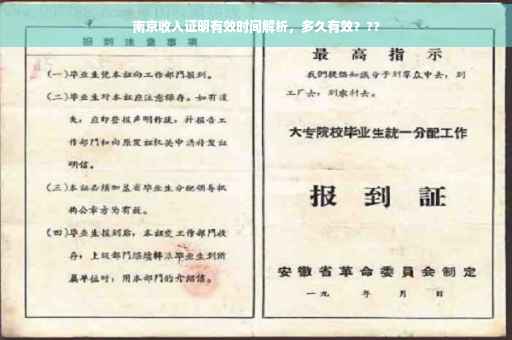 南京收入证明有效时间解析，多久有效？??
报到注意事项
(一)毕业生凭本证向工作部門报到。
(二)毕业生对本証应注意保存。如有遺
失，应即登报声明作废，并报告工
作部門和向原发証机关申請补发証
明信。
(三)本証必須加盖省毕业生分配領导机
构公章方为有效。
(四)毕业生报到后，本証交工作部門收
存；上級部門
毕业生到所
属单位时，用本部門的介紹信。
最高指示
我們提倡知識分子到羣众中去，到
工厂去，到农村去。
大专院校毕业生統一分配工作
报到証
安徽省革命委員会制定
一九 年 月 日